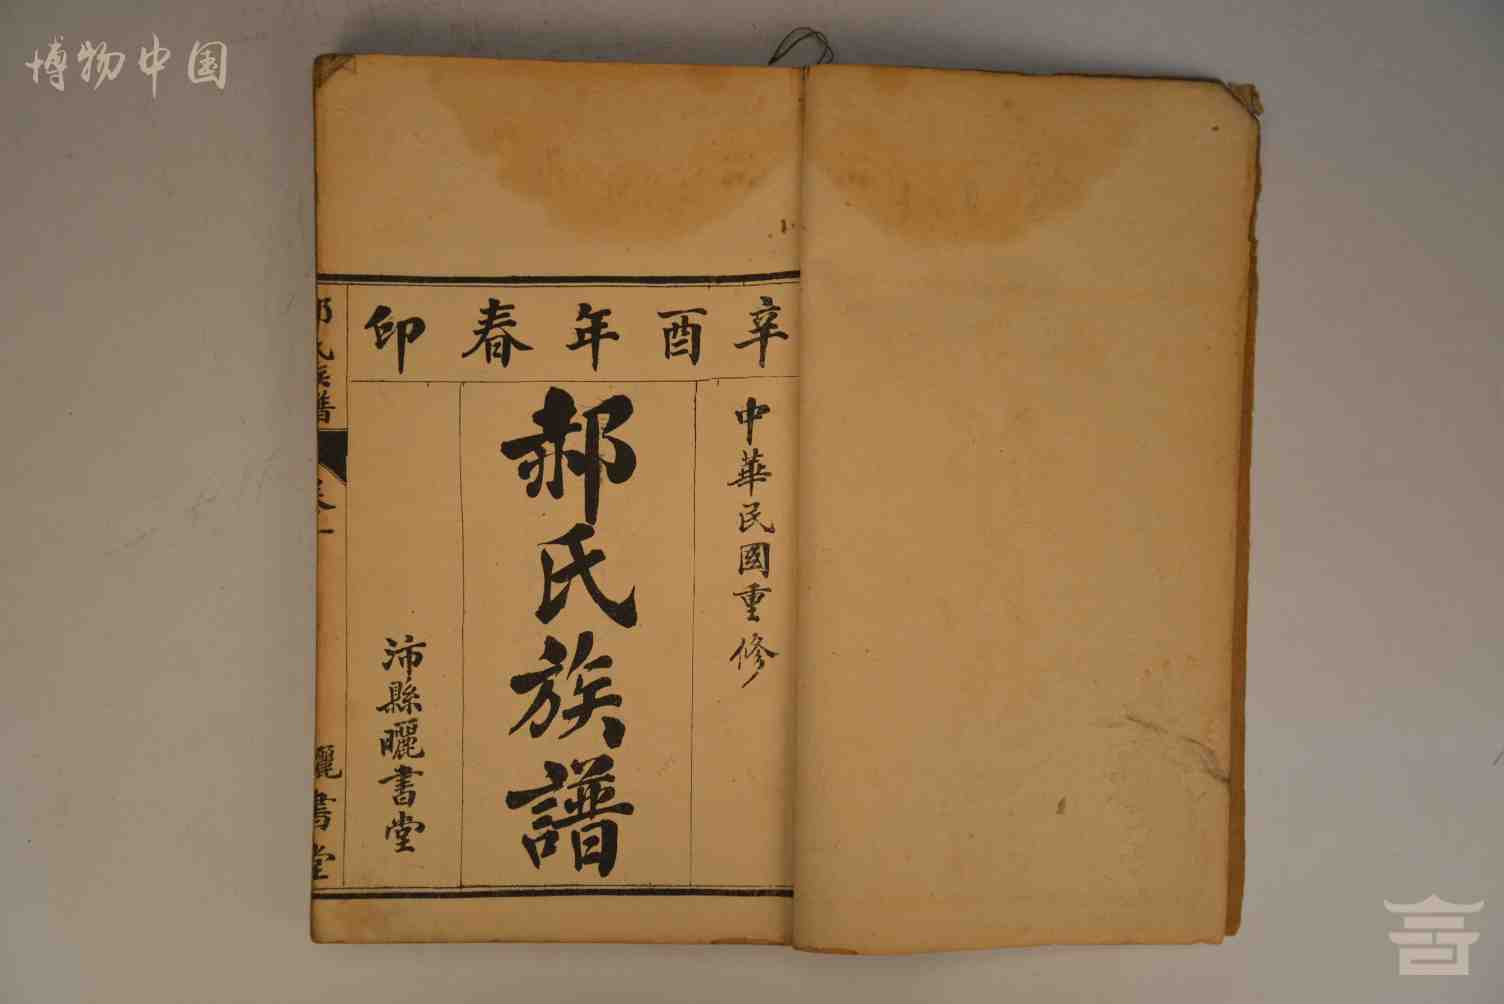 博物中国
辛酉年春印
中華民國重修
郝氏族譜
沛縣曬書堂
郝氏族譜
卷一
曬書堂